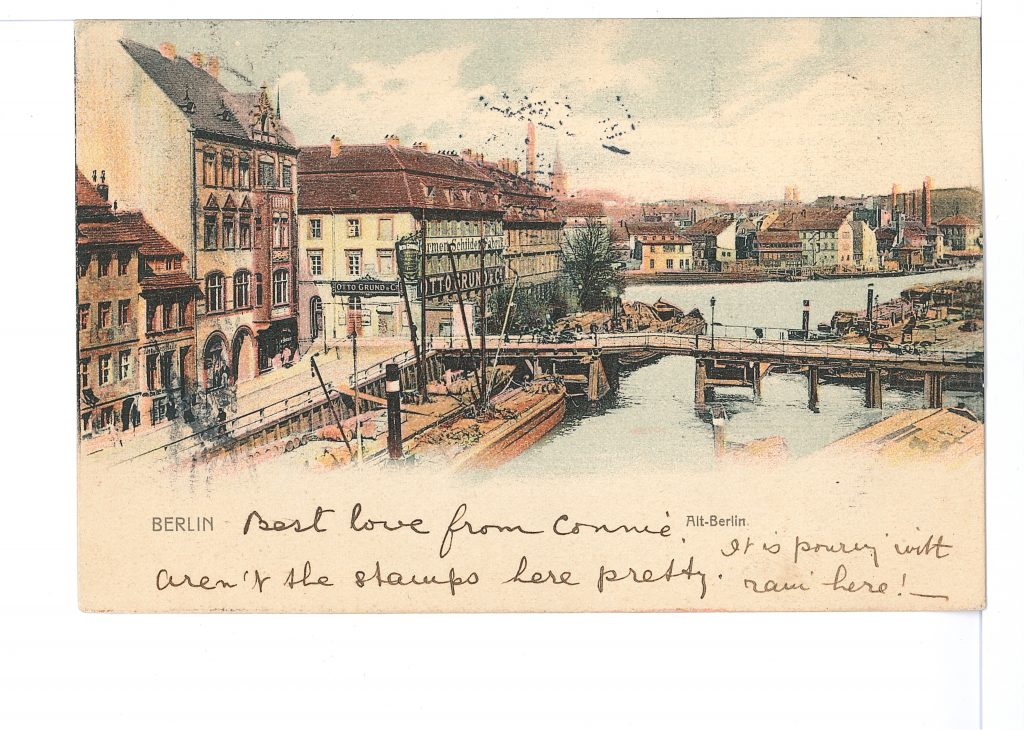 OTTO GRUND & Co
OTTO GRUND & Co
BERLIN
Best love from Connie.
Alt-Berlin.
aren't the stamps here pretty.
It is pouring with
rain here! —